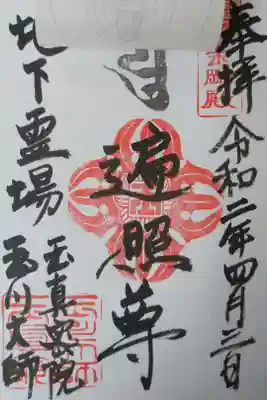 奉拝
令和二年四月三日
遍照尊
札下霊場
玉真密院
玉川大師